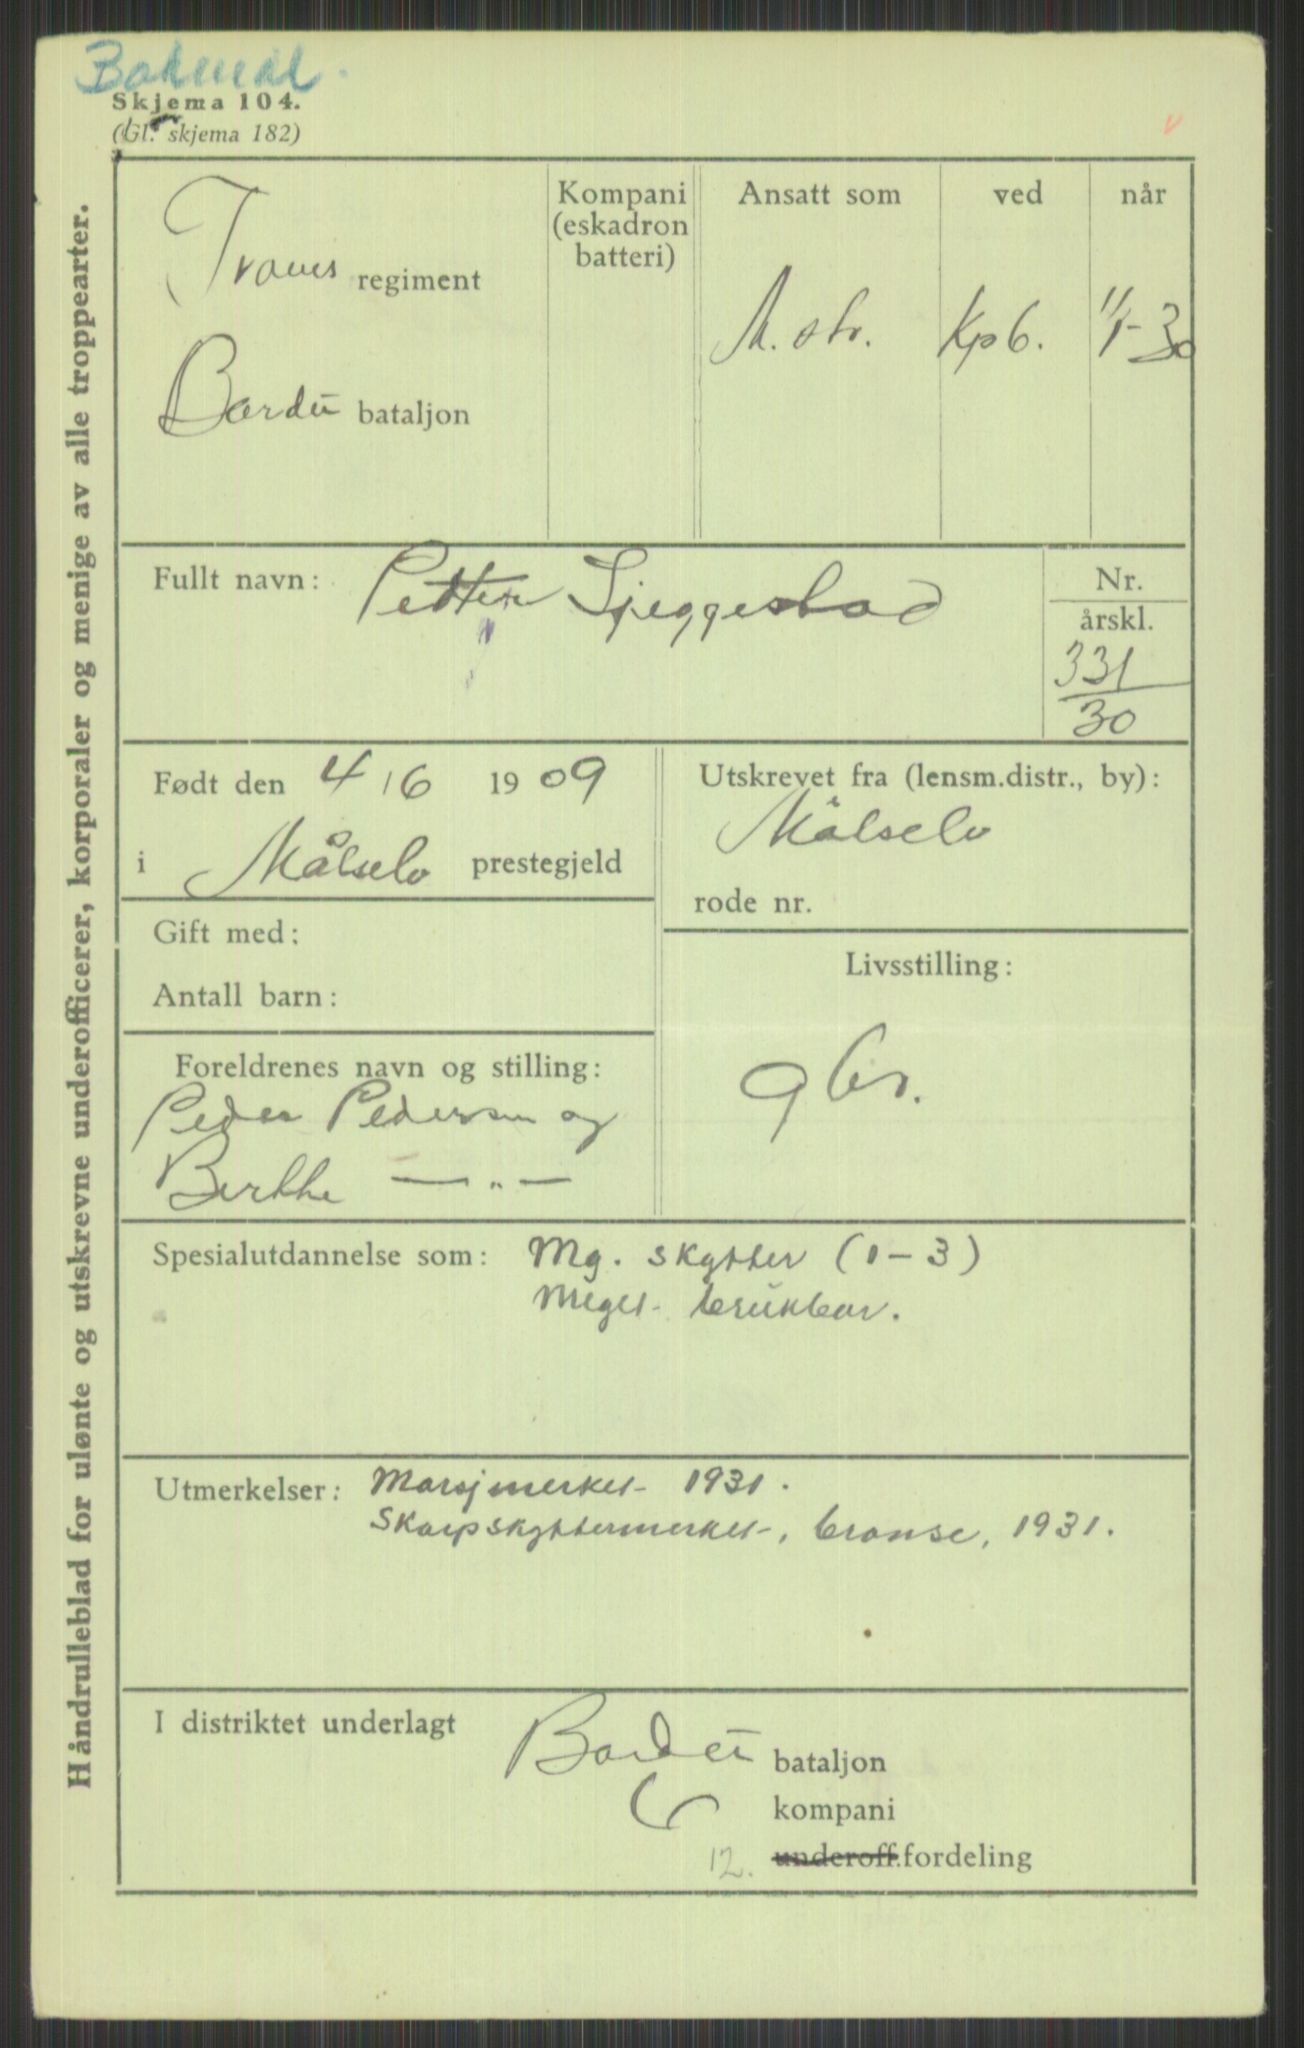 Bokmål.
Skjema 104.
(Gl. skjema 182)
Håndrulleblad for ulønte og utskrevne underofficerer, korporaler og menige av alle troppearter.
Troms regiment
Bardu bataljon
Kompani
(eskadron
batteri)
Ansatt som
ved
når
M. str.
Kp 6.
1/1-30
Fullt navn: Petter Ljeggestad
Nr.
årskl.
331
30
Født den 4/6 1909
i Målselv prestegjeld
Utskrevet fra (lensm.distr., by):
Målselv
rode nr.
Gift med:
Antall barn:
Livsstilling:
gbr.
Foreldrenes navn og stilling:
Peder Pedersen og
Berthe — „ —
Spesialutdannelse som: Mg. skytter (1-3)
Meget brukbar.
Utmerkelser: Marsjmerket 1931.
Skarpskyttermerket, bronse, 1931.
I distriktet underlagt
Bardu bataljon
6 kompani
12. underoff.fordeling